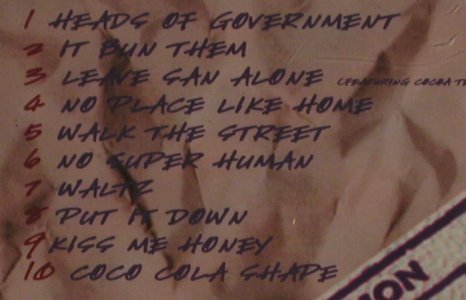 1 HEADS OF GOVERNMENT
2 IT BUN THEM
3 LEAVE SAN ALONE (FEATURING COCOA TE
4 NO PLACE LIKE HOME
5 WALK THE STREET
6 NO SUPER HUMAN
7 WALTZ
8 PUT IT DOWN
9 KISS ME HONEY
10 COCO COLA SHAPE
ION